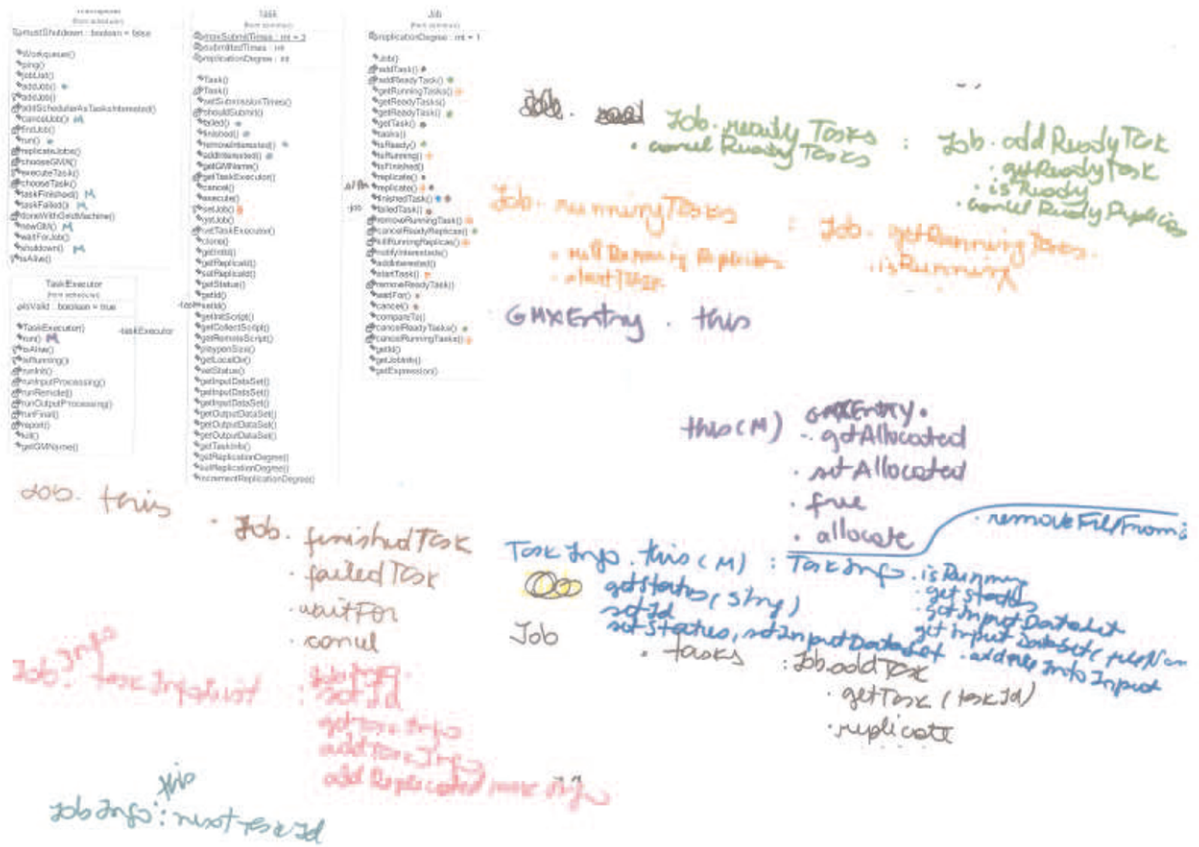 (from scheduler)
mustShutdown : boolean = false
Workqueue()
ping()
jobList()
addJob()
addJob()
addSchedulerAsTaskInterested()
cancelJob() M
findJob()
run()
replicateJobs()
chooseGMX()
executeTask()
chooseTask()
taskFinished() M
taskFailed() M
doneWithGridMachine()
newGM() M
waitForJob()
shutdown() M
isAlive()
TaskExecutor
(from scheduler)
isValid : boolean = true
TaskExecutor()
run() M
isAlive()
isRunning()
runInit()
runInputProcessing()
runRemote()
runOutputProcessing()
runFinal()
report()
kill()
getGMName()
-taskExecutor
Task
(from common)
maxSubmitTimes : int = 3
submittedTimes : int
replicationDegree : int
Task()
Task()
setSubmissionTimes()
shouldSubmit()
failed()
finished()
removeInterested()
addInterested()
getGMName()
getTaskExecutor()
cancel()
execute()
setJob()
getJob()
setTaskExecutor()
clone()
getIntId()
getReplicaId()
setReplicaId()
getStatus()
getId()
setId()
getInitScript()
getCollectScript()
getRemoteScript()
playpenSize()
getLocalDir()
setStatus()
getInputDataSet()
getInputDataSet()
getInputDataSet()
getOutputDataSet()
getOutputDataSet()
getOutputDataSet()
getTaskInfo()
getReplicationDegree()
setReplicationDegree()
incrementReplicationDegree()
-job
Job
(from common)
replicationDegree : int = 1
Job()
addTask()
addReadyTask()
getRunningTasks()
getReadyTasks()
getReadyTask()
getTask()
tasks()
isReady()
isRunning()
isFinished()
replicate()
replicate()
finishedTask()
failedTask()
removeRunningTask()
cancelReadyReplicas()
killRunningReplicas()
notifyInteresteds()
addInterested()
startTask()
removeReadyTask()
waitFor()
cancel()
compareTo()
cancelReadyTasks()
cancelRunningTasks()
getId()
getJobInfo()
getExpression()
Job. readyTasks : Job. addReadyTask
· cancel Ready Tasks
· getReadyTask
· isReady
· cancel Ready Replicas
Job. runningTasks : Job. getRunningTasks.
· kill Running Replicas
· isRunning
· startTask
GMXEntry . this
this (M) GMXEntry.
· getAllocated
· setAllocated
· free
· allocate
Job. this
· Job. finishedTask
· failedTask
· waitFor
· cancel
· removeFileFrom
TaskInfo . this (M) : TaskInfo . isRunning
getStatus (string)
· getStatus
setId
· getInputDataSet
setStatus, setInputDataSet
Job
· tasks : Job.addTask
· getTask (taskId)
· replicate
Job Info. taskInfoList :
setId
getTaskInfo
addTaskInfo
add Replicated
this
Job Info : nextTaskId